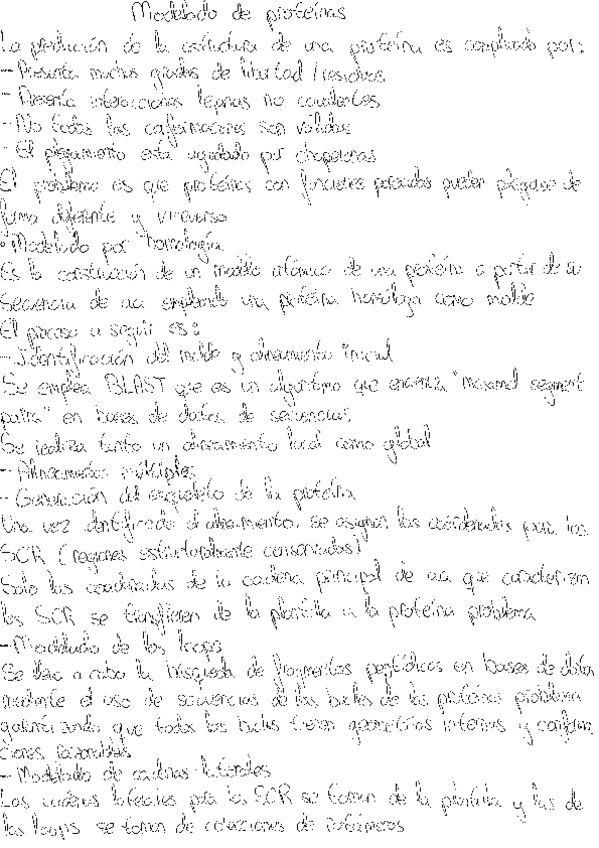 Modelado de proteínas
La predicción de la estructura de una proteína es complicado por:
- Presenta muchos grados de libertad / residuos
- Presenta interacciones lejanas no covalentes
- No todas las conformaciones son válidas
- El plegamiento está ayudado por chaperonas
El problema es que proteínas con funciones parecidas pueden plegarse de
forma diferente y viceversa
· Modelado por homología
Es la construcción de un modelo atómico de una proteína a partir de su
secuencia de aa empleando una proteína homóloga como molde
El proceso a seguir es:
- Identificación del molde y alineamiento inicial
Se emplea BLAST que es un algoritmo que encuentra "maximal segment
pairs" en bases de datos de secuencias
Se realiza tanto un alineamiento local como global
- Alineamientos múltiples
- Generación del esqueleto de la proteína
Una vez identificado el alineamiento, se asignan las coordenadas para las
SCR (regiones estructuralmente conservadas)
Solo las coordenadas de la cadena principal de aa que caracterizan
las SCR se transfieren de la plantilla a la proteína problema
- Modelado de los loops
Se lleva a cabo la búsqueda de fragmentos peptídicos en bases de datos
mediante el uso de secuencias de los bucles de las proteínas problema
garantizando que todos los bucles tienen geometrías internas y conforma
ciones razonables
- Modelado de cadenas laterales
Las cadenas laterales para las SCR se toman de la plantilla y las de
los loops se toman de colecciones de rotámeros